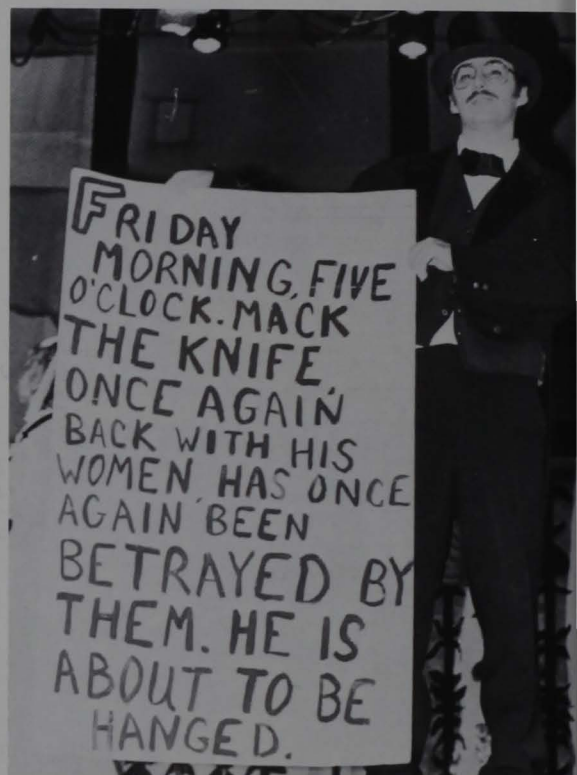 FRIDAY
MORNING, FIVE
O'CLOCK. MACK
THE KNIFE,
ONCE AGAIN
BACK WITH HIS
WOMEN, HAS ONCE
AGAIN BEEN
BETRAYED BY
THEM. HE IS
ABOUT TO BE
HANGED.